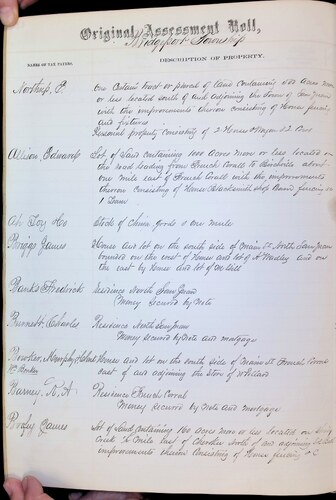 Original Assessment Roll,
Bridgeport Township
NAMES OF TAX PAYERS.
DESCRIPTION OF PROPERTY.
Northup, P.
One Certain tract or parcel of land containing 400 acres more
or less located South of and adjoining the Town of San Juan
with the improvements thereon consisting of House fencing
and fixtures
Personal property consisting of 2 Horses Wagon 12 Cows
Allison, Edward
Lot of Land containing 1000 acres more or less located on
the road leading from French Corall to about
one mile east of French Corall with the improvements
thereon consisting of House Blacksmith shop Barn fencing
1 Team
Ah Toy Hoe
Stock of China goods & one mule
Briggs James
House and lot on the south side of Main St North San Juan
bounded on the east of House and lot of A and on
the east by House and lot of
Banks Frederick
Residence North San Juan
Money secured by Note
Burnett, Charles
Residence North San Juan
Money secured by Note and mortgage
House and lot on the south side of Main St French Corral
east of and adjoining the store of
Barney, K. A.
Residence French Corral
Money secured by Note and mortgage
James
Lot of Land containing 160 acres more or less located on
Creek mile east of north of and adjoining
improvements thereon consisting of House fencing &C